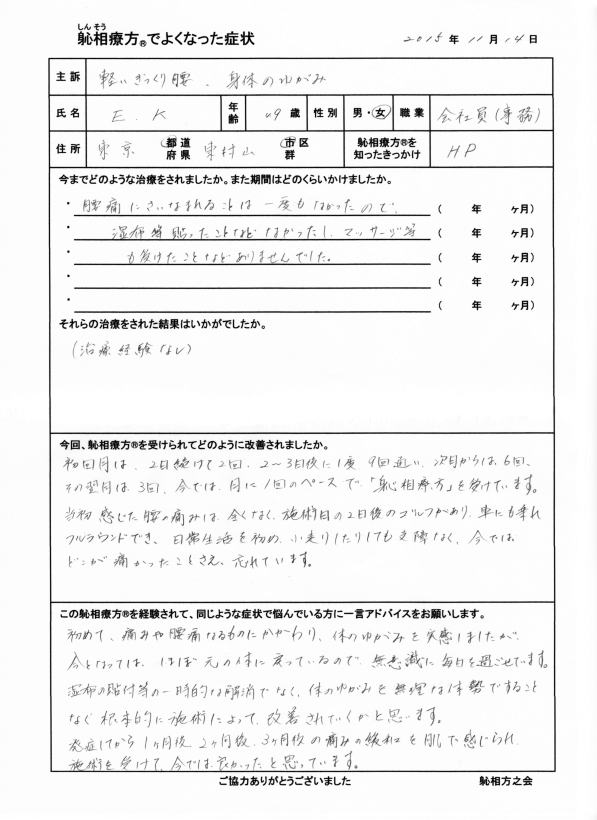 しんそう
㐹相療方®でよくなった症状
2015年 11月 14日
主訴 軽いぎっくり腰、身体のゆがみ
氏名 E.K 年齢 49歳 性別 男・女 職業 会社員(事務)
住所 東京 都道府県 東村山 市区群 相療方®を知ったきっかけ HP
今までどのような治療をされましたか。また期間はどのくらいかけましたか。
・腰痛にさいなまれることは一度もなかったので、 ( 年 ヶ月)
・湿布等貼ったことなどなかったし、マッサージ等 ( 年 ヶ月)
・も受けたことなどありませんでした。 ( 年 ヶ月)
・ ( 年 ヶ月)
・ ( 年 ヶ月)
それらの治療をされた結果はいかがでしたか。
(治療経験なし)
今回、相療方®を受けられてどのように改善されましたか。
初回月は、2日続けて2回、2〜3日後に1度 9回通い、次月からは6回、
その翌月は3回、今では、月に1回のペースで、「相療方」を受けています。
当初感じた腰の痛みは、全くなく、施術日の2日後のゴルフがあり、車にも乗れ
フルラウンドでき、日常生活を初め、小走りしたりしても支障なく、今では
どこが痛かったことさえ、忘れています。
この相療方®を経験されて、同じような症状で悩んでいる方に一言アドバイスをお願いします。
初めて、痛みや腰痛なるものにかかわり、体のゆがみを実感しましたが、
今となっては、ほぼ元の体に戻っているので、無意識に毎日を過ごせています。
湿布の貼付等の一時的な解消でなく、体のゆがみを無理な体勢ですること
なく根本的に施術によって、改善されていくかと思います。
発症してから1ヶ月後、2ヶ月後、3ヶ月後の痛みの緩和を肌で感じられ、
施術を受けて、今では良かったと思っています。
ご協力ありがとうございました 相方之会